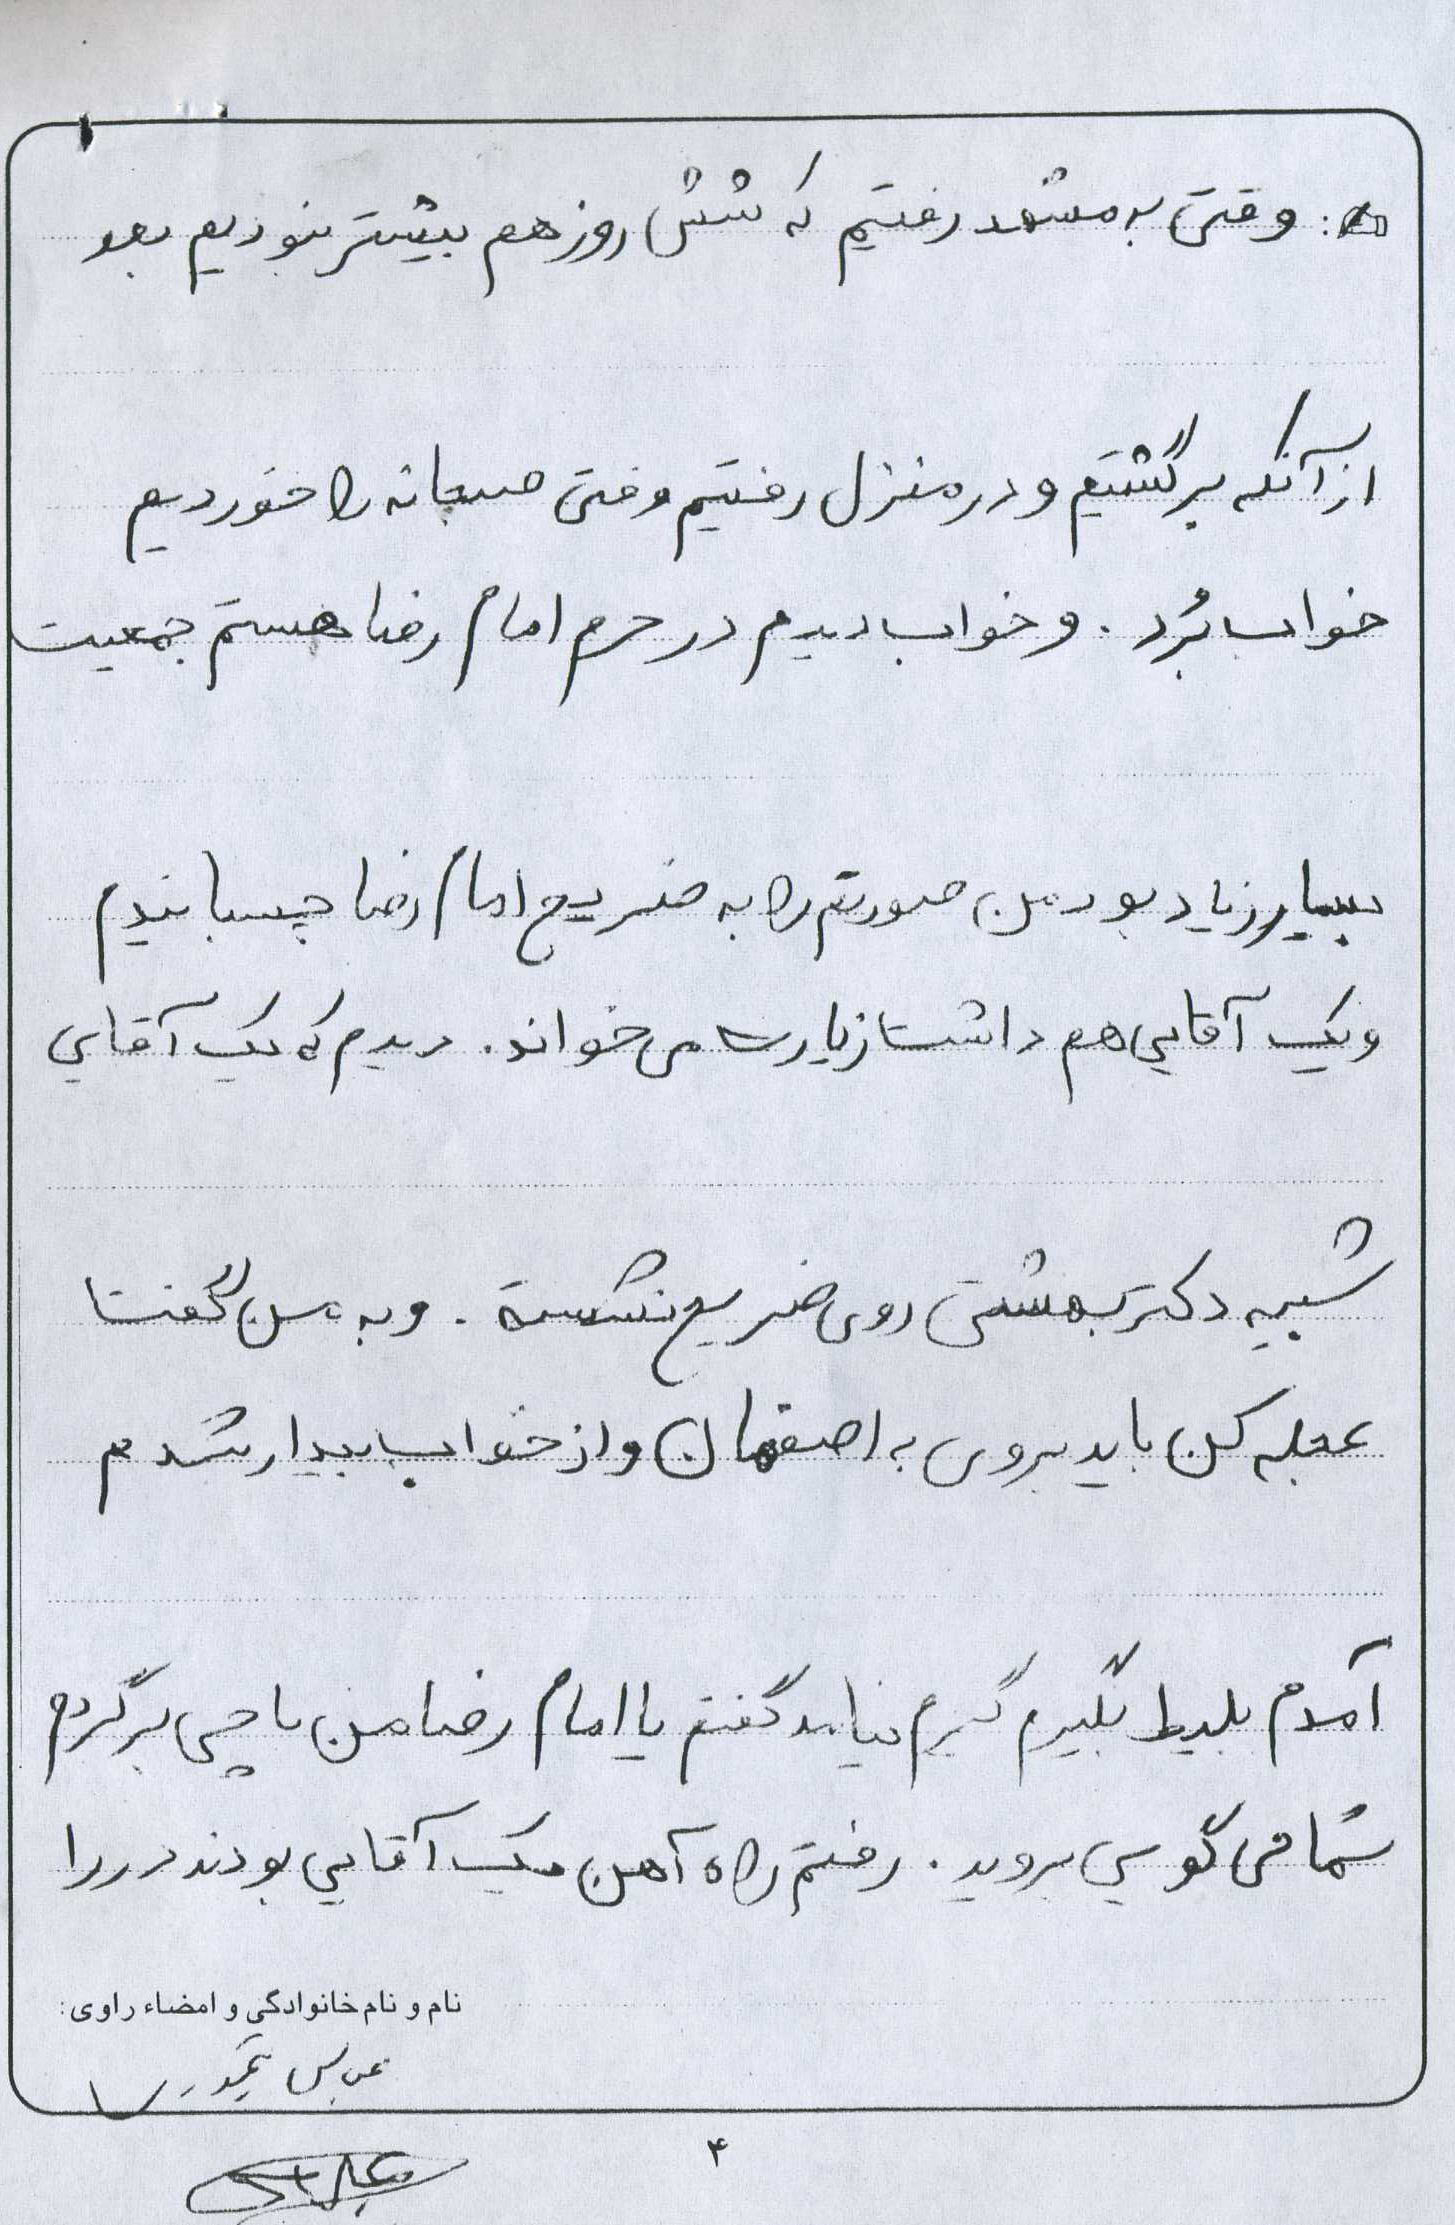 : وقتی به مشهد رفتیم که شش روز هم بیشتر نبودیم بعد
از آنکه برگشتیم و در منزل رفتیم وقتی صبحانه را خوردیم
خواب برد . و خواب دیدم در حرم امام رضا هستم جمعیت
بسیار زیاد بود من صورتم را به ضریح امام رضا چسباندیم
ویک آقایی هم داشت زیارت می خواند . دیدم که یک آقایی
شبیه دکتر بهشتی روی ضریح نشسته . و به من گفت
عجله کن باید بروی به اصفهان و از خواب بیدار شدم
آمدم بلیط بگیرم گیرم نیامد گفتم یا امام رضا من با چی برگردم
شما می گویی بروید . رفتم راه آهن یک آقایی بودند در را
نام و نام خانوادگی و امضاء راوی:
عباس
۴